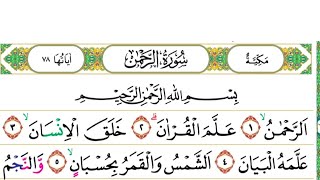 مَكِّيَّةٌ سُوْرَةُ الرَّحْمٰنِ اٰيَاتُهَا ٧٨
بِسْمِ اللّٰهِ الرَّحْمٰنِ الرَّحِيْمِ
اَلرَّحْمٰنُۙ ١ عَلَّمَ الْقُرْاٰنَۗ ٢ خَلَقَ الْاِنْسَانَۙ ٣
عَلَّمَهُ الْبَيَانَ ٤ اَلشَّمْسُ وَالْقَمَرُ بِحُسْبَانٍۙ ٥ وَّالنَّجْمُ